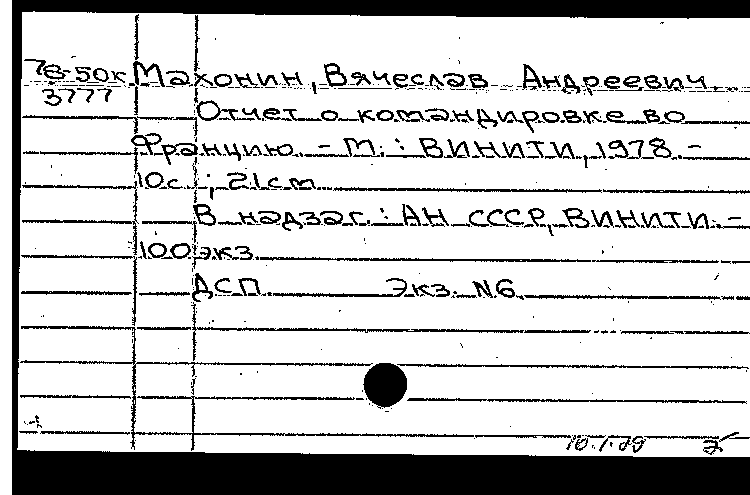 78-50к Махонин, Вячеслав Андреевич.
3777
Отчет о командировке во
Францию. - М. : ВИНИТИ, 1978. -
10с. ; 21см
В надзаг. : АН СССР, ВИНИТИ. -
100экз.
ДСП Экз. N6.